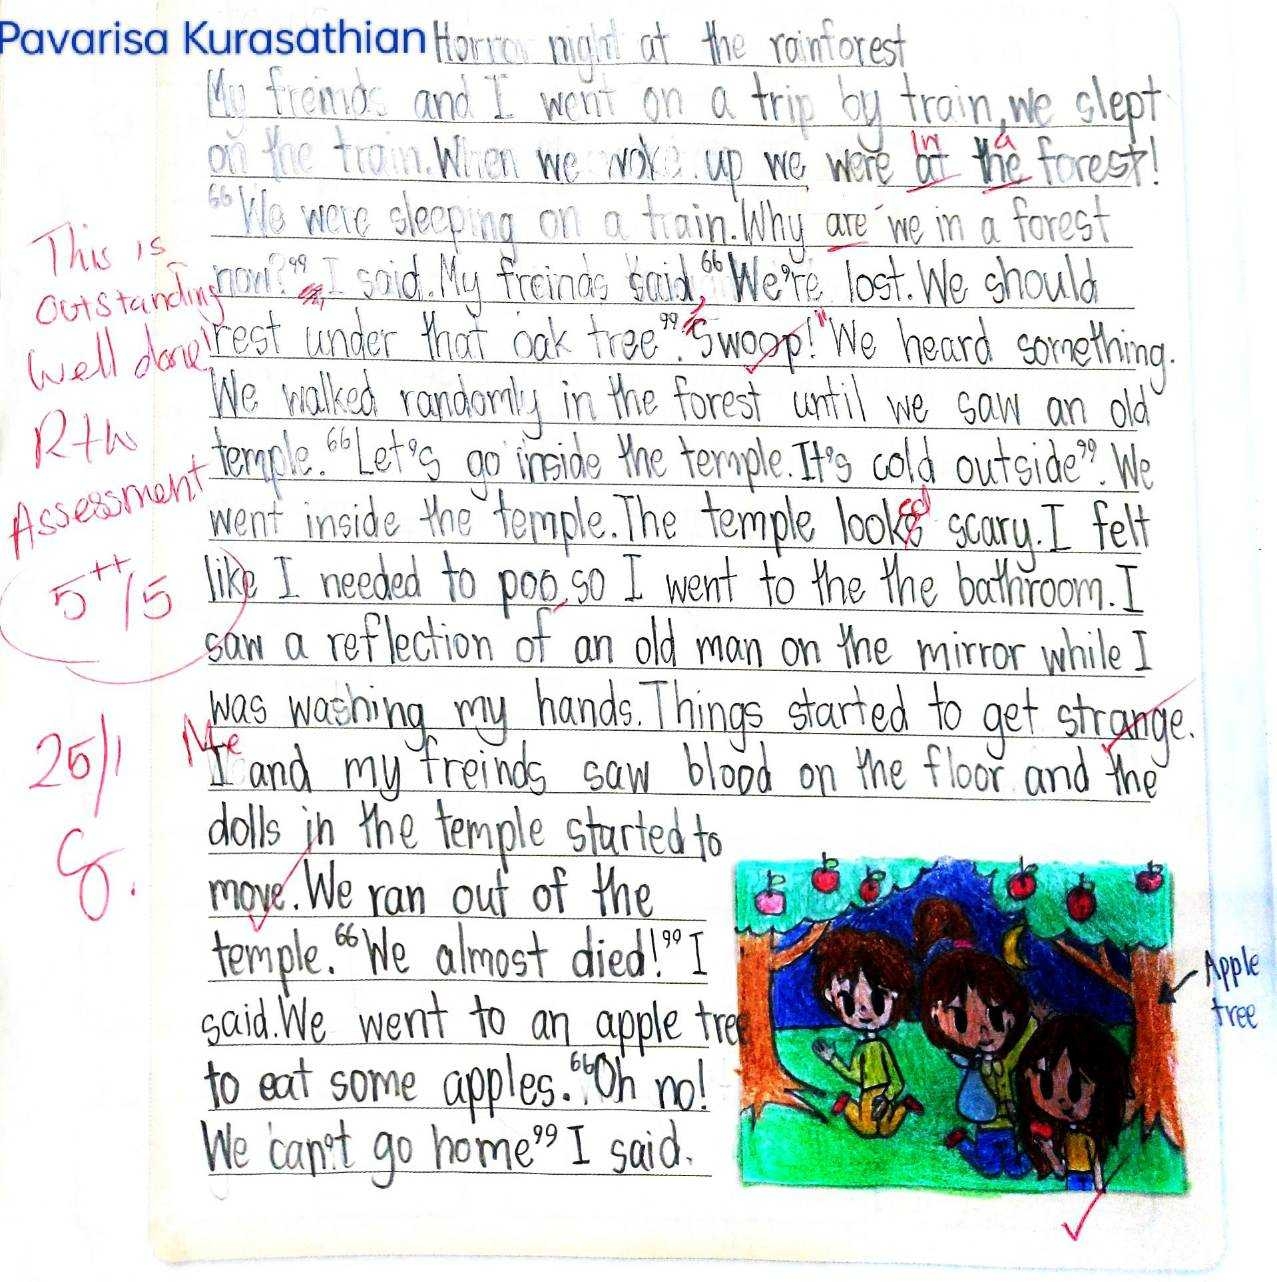 Pavarisa Kurasathian
Horror night at the rainforest
My freinds and I went on a trip by train, we slept
on the train. When we woke up we were at the forest!
In a
“We were sleeping on a train. Why are we in a forest
now?” I said. My freinds said, “We're lost. We should
rest under that oak tree”. "Swoop!" We heard something.
We walked randomly in the forest until we saw an old
temple. “Let's go inside the temple. It's cold outside”. We
went inside the temple. The temple looks scary. I felt
ed
like I needed to poo, so I went to the the bathroom. I
saw a reflection of an old man on the mirror while I
was washing my hands. Things started to get strange.
Me
I and my freinds saw blood on the floor and the
dolls in the temple started to
move. We ran out of the
temple. “We almost died!” I
said. We went to an apple tree
to eat some apples. “Oh no!
We can't go home” I said.
This is
outstanding
Well done!
R+W
Assessment
5++/5
25/1
Apple
tree